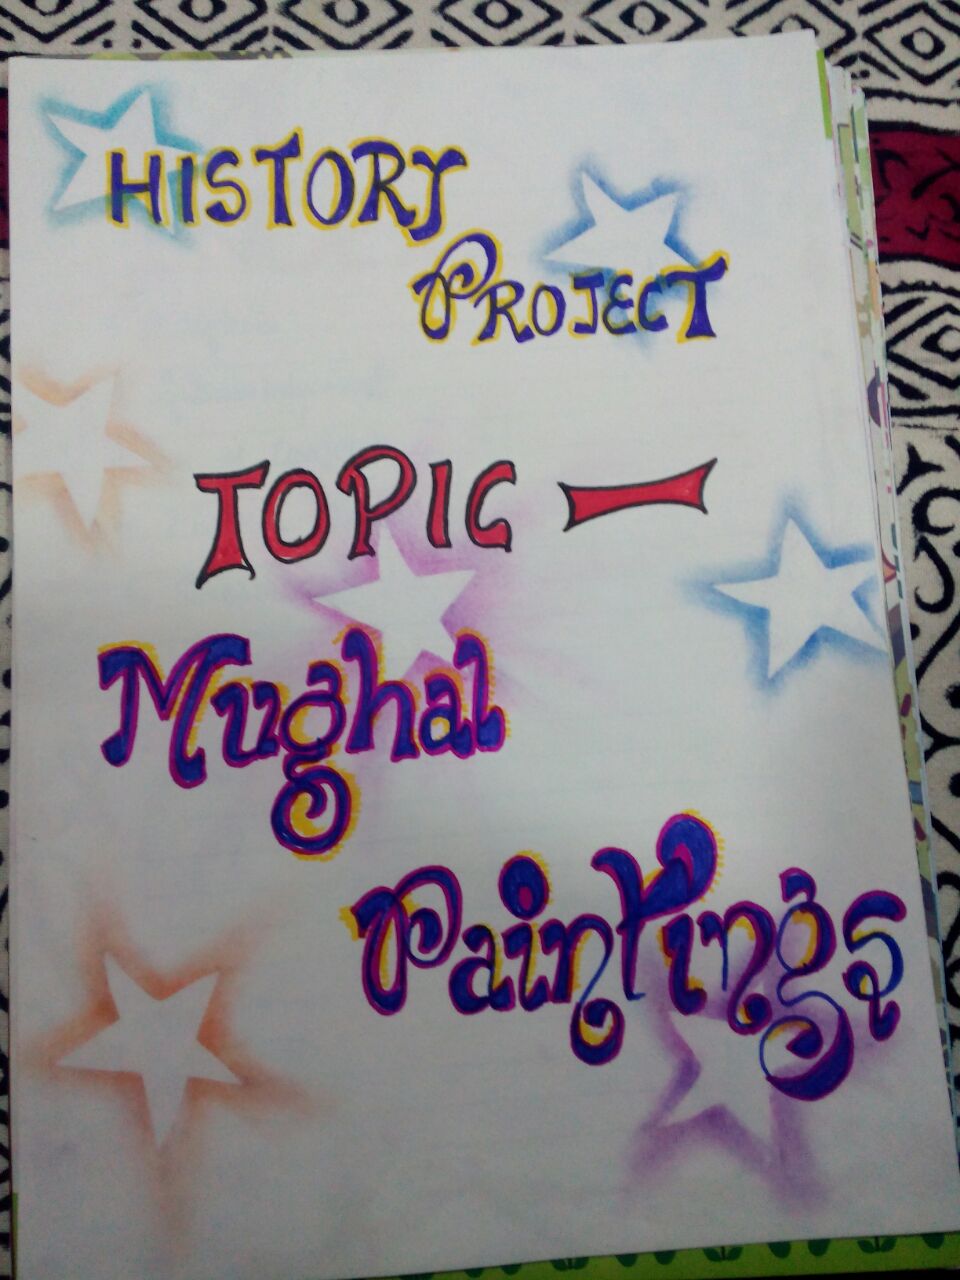 HISTORY
PROJECT
TOPIC —
Mughal
Paintings